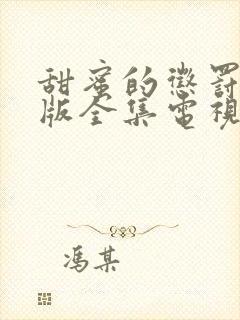 甜蜜的懲罰
版全集電視
馮某